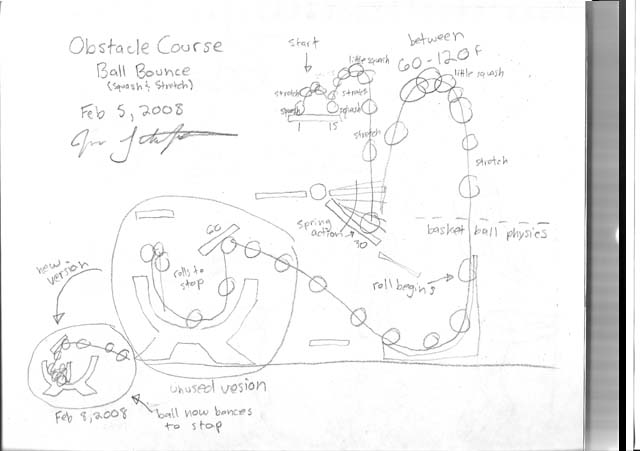 Obstacle Course
Ball Bounce
(Squash & Stretch)
Feb 5, 2008
start
little squash
stretch
stretch
squash
squash
1
15
stretch
between
60-120 f
little squash
stretch
spring
action
30
basket ball physics
roll begins
60
rolls to
stop
new
version
unused vesion
Feb 8, 2008
ball now bances
to stop